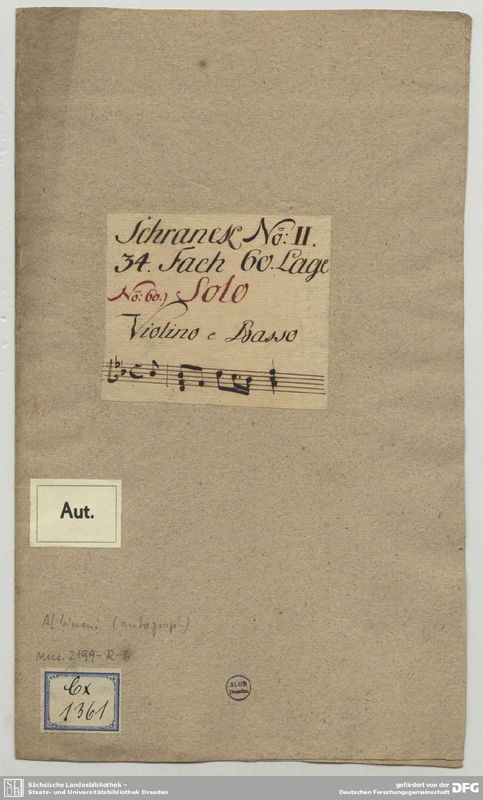 Schranck No: II.
34. Fach 60. Lage
No: 60.) Solo
Violino e Basso
Aut.
Albinoni (autograph)
Mus. 2199-R-6
Cx
1361
SLUB
Dresden
SLUB
Sächsische Landesbibliothek –
Staats- und Universitätsbibliothek Dresden
gefördert von der
Deutschen Forschungsgemeinschaft
DFG